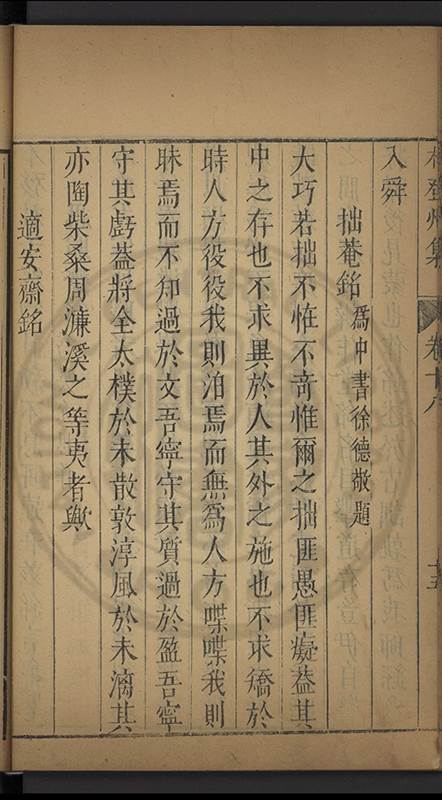 入舜
拙菴銘 爲中書徐德敬題
大巧若拙不恠不竒惟爾之拙匪愚匪癡葢其
中之存也不求異於人其外之施也不求矯於
時人方役役我則泊焉而無爲人方喋喋我則
昧焉而不知過於文吾寧守其質過於盈吾寧
守其虧葢將全太樸於未散敦淳風於未漓其
亦陶柴桑周濂溪之等夷者歟
適安齋銘